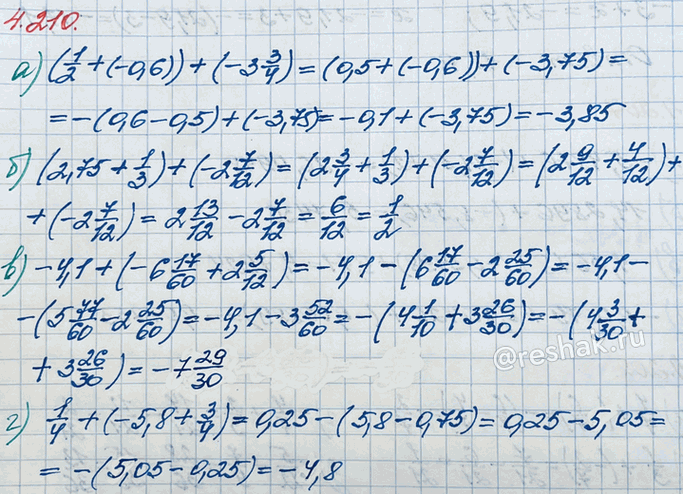 4.210.
а) (1/2 + (-0,6)) + (-3 3/4) = (0,5 + (-0,6)) + (-3,75) =
= -(0,6 - 0,5) + (-3,75) = -0,1 + (-3,75) = -3,85
б) (2,75 + 1/3) + (-2 7/12) = (2 3/4 + 1/3) + (-2 7/12) = (2 9/12 + 4/12) +
+ (-2 7/12) = 2 13/12 - 2 7/12 = 6/12 = 1/2
в) -4,1 + (-6 17/60 + 2 5/12) = -4,1 - (6 17/60 - 2 25/60) = -4,1 -
- (5 77/60 - 2 25/60) = -4,1 - 3 52/60 = -(4 1/10 + 3 26/30) = -(4 3/30 +
+ 3 26/30) = -7 29/30
@reshak.ru
г) 1/4 + (-5,8 + 3/4) = 0,25 - (5,8 - 0,75) = 0,25 - 5,05 =
= -(5,05 - 0,25) = -4,8